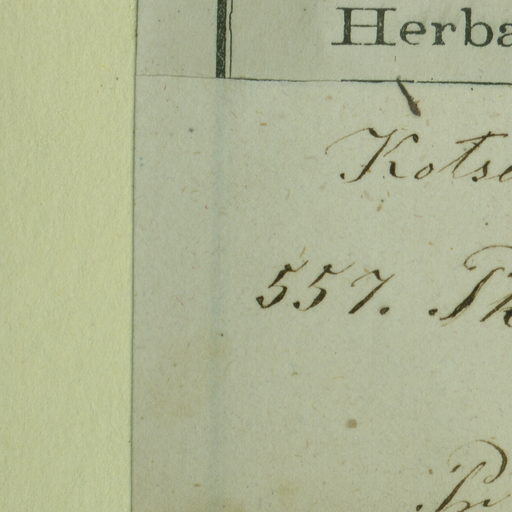 Herba
Kots
557. Th
Pr